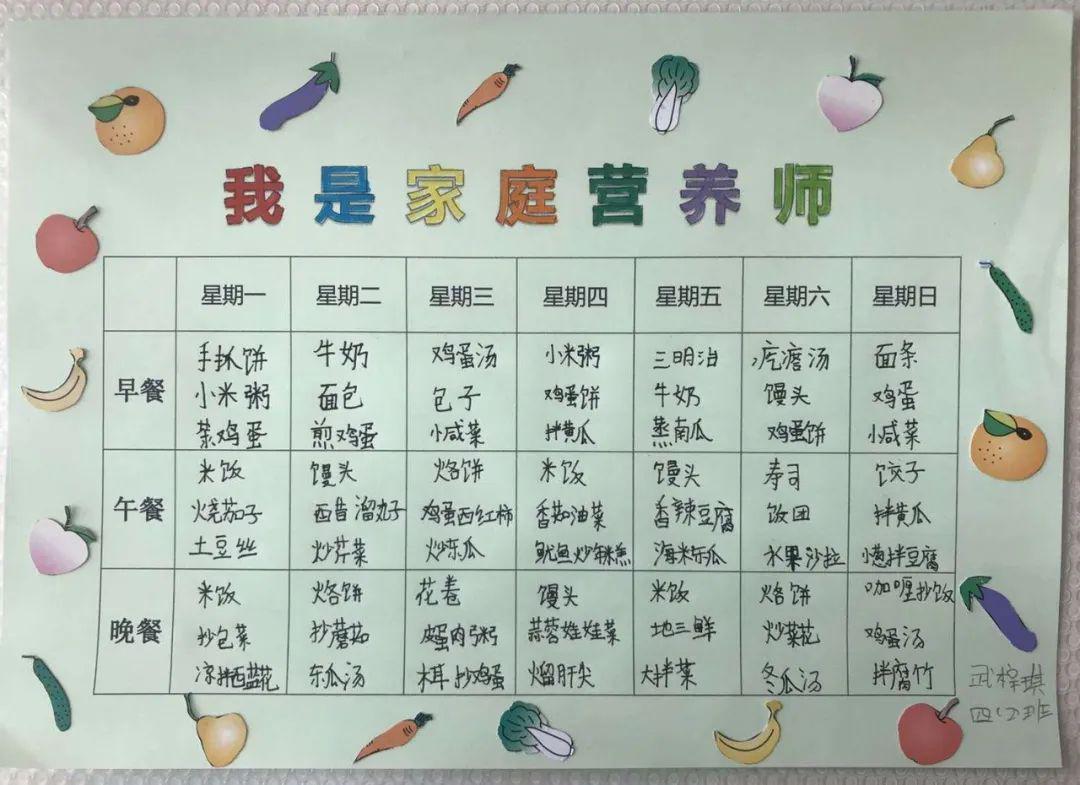 我是家庭营养师
星期一 星期二 星期三 星期四 星期五 星期六 星期日
早餐
手抓饼 牛奶 鸡蛋汤 小米粥 三明治 汤 面条
小米粥 面包 包子 鸡蛋饼 牛奶 馒头 鸡蛋
茶鸡蛋 煎鸡蛋 小咸菜 拌黄瓜 蒸南瓜 鸡蛋饼 小咸菜
午餐
米饭 馒头 烙饼 米饭 馒头 寿司 饺子
烧茄子 溜丸子 鸡蛋西红柿 香茹油菜 香辣豆腐 饭团 拌黄瓜
土豆丝 炒芹菜 炒东瓜 鱿鱼炒年糕 海米东瓜 水果沙拉 小葱拌豆腐
晚餐
米饭 烙饼 花卷 馒头 米饭 烙饼 咖喱抄饭
抄包菜 抄蘑茹 皮蛋肉粥 蒜蓉娃娃菜 地三鲜 炒菜花 鸡蛋汤
凉拌西蓝花 东瓜汤 木耳抄鸡蛋 熘肝尖 大拌菜 冬瓜汤 拌腐竹
武梓琪
四(2)班